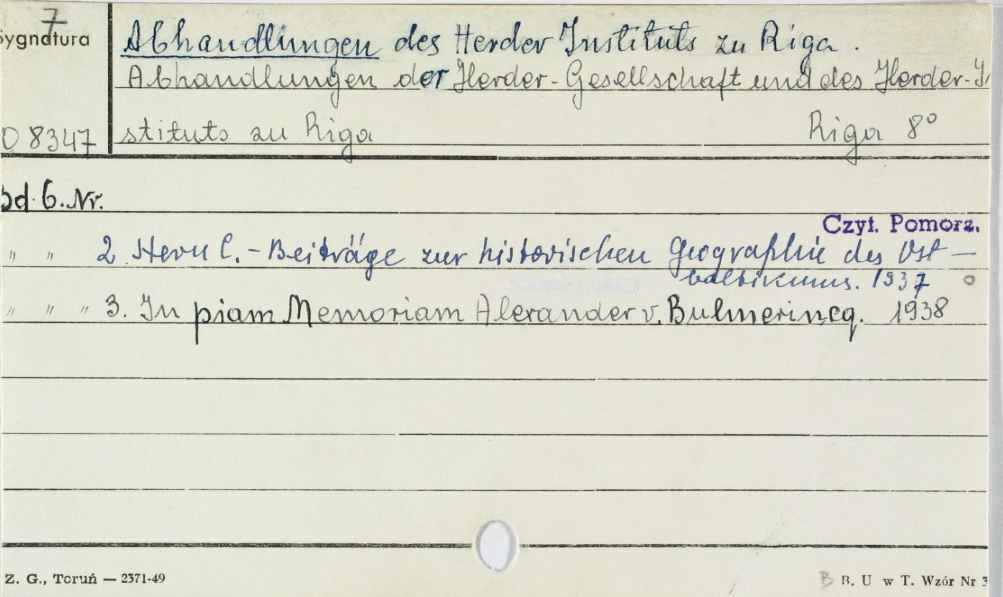 7
Sygnatura
Abhandlungen des Herder Instituts zu Riga.
Abhandlungen der Herder-Gesellschaft und des Herder-In
stituts zu Riga Riga 8°
O 8347
bd. 6. Nr.
Czyt. Pomorz.
" " 2. C. - Beiträge zur historischen Geographie des Ost-
baltikums. 1937
" " " 3. In piam Memoriam Alexander v. Bulmerincq. 1938
Z. G., Toruń — 2371-49
B B. U w T. Wzór Nr 3